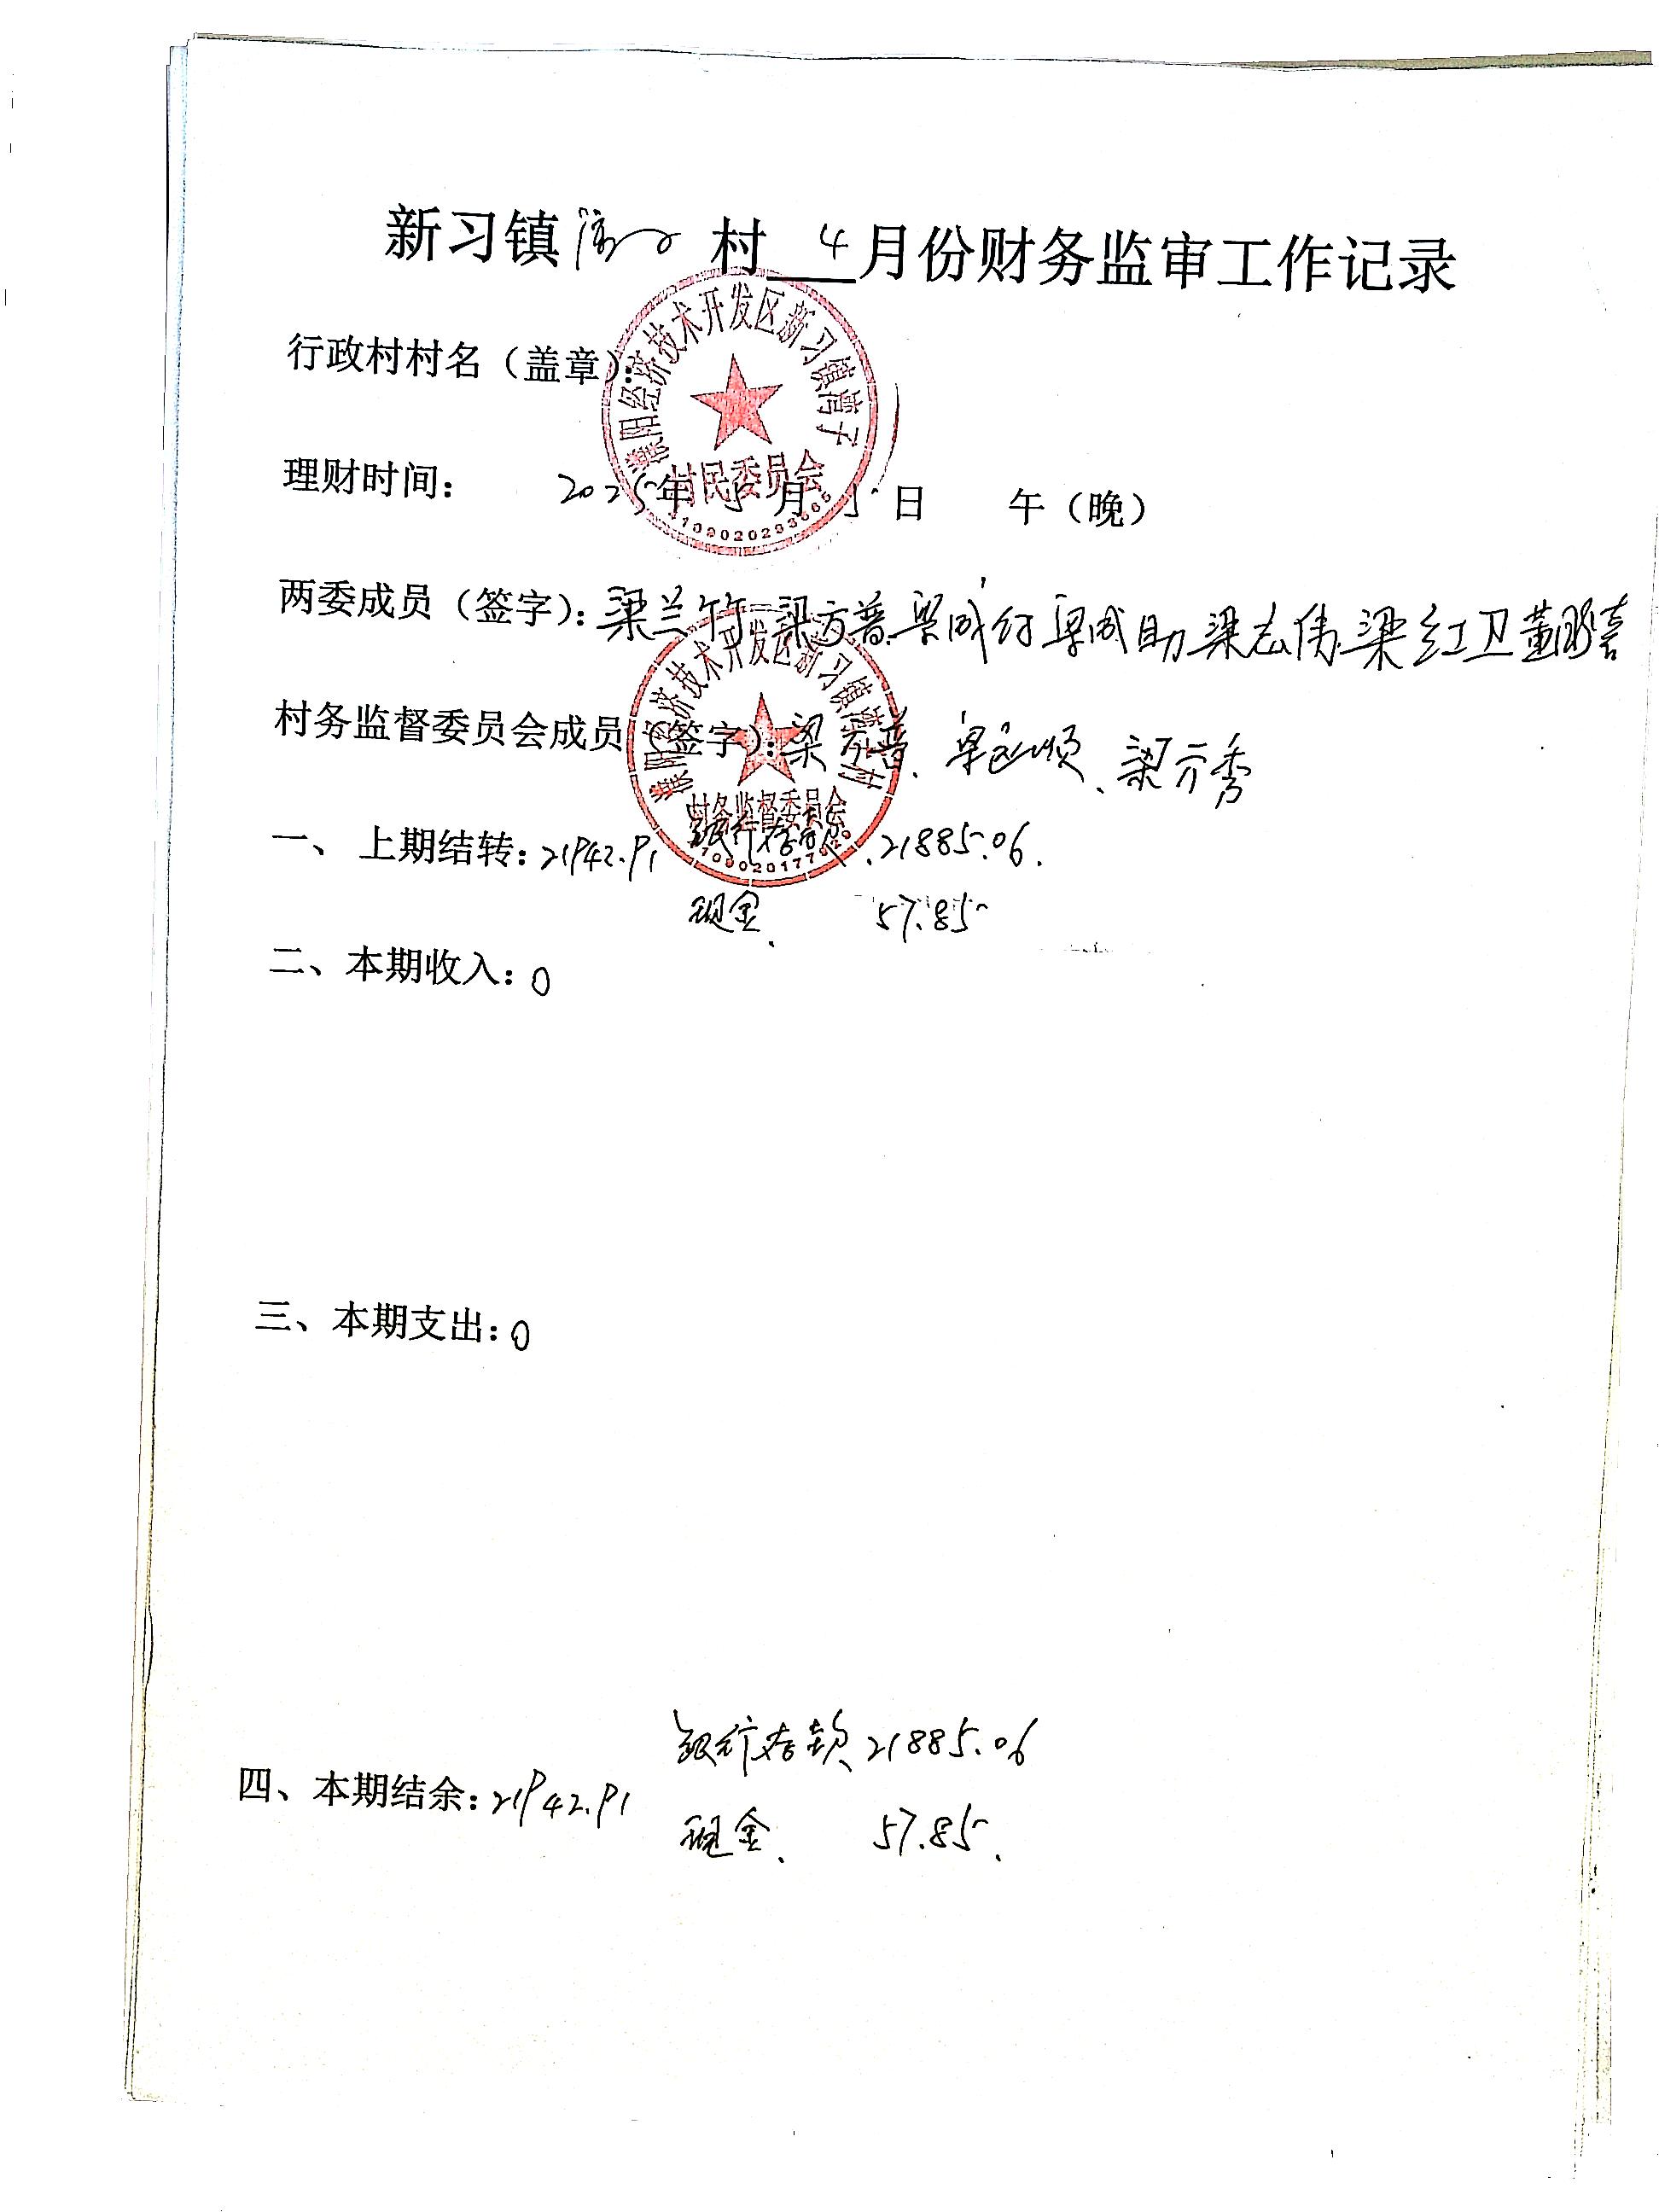 新习镇湾子村 4 月份财务监审工作记录
行政村村名（盖章）：
濮阳经济技术开发区新习镇湾子
村民委员会
理财时间： 2025年5月5日 午（晚）
两委成员（签字）：梁兰竹 梁方普 梁成行 梁成自力 梁志伟 梁红卫 董鹏喜
村务监督委员会成员（签字）：梁方普、梁运顺、梁方秀
濮阳经济技术开发区新习镇湾子村
村务监督委员会
一、 上期结转：21942.91 银行存款 21885.06.
现金 57.85
二、本期收入：0
三、本期支出：0
银行存款 21885.06
四、本期结余：21942.91
现金 57.85